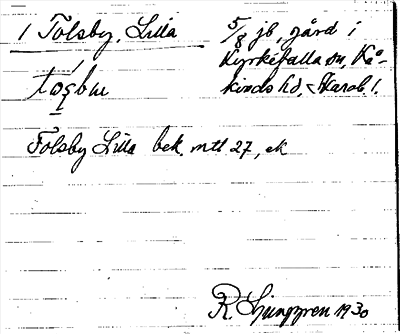 1 Tolsby, Lilla
5/8 jb, gård i
Kyrkefalla sn, Kå-
kinds hd, Skarab l.
Tolsby Lilla bek. mtl 27, ek
R. Ljunggren 1930